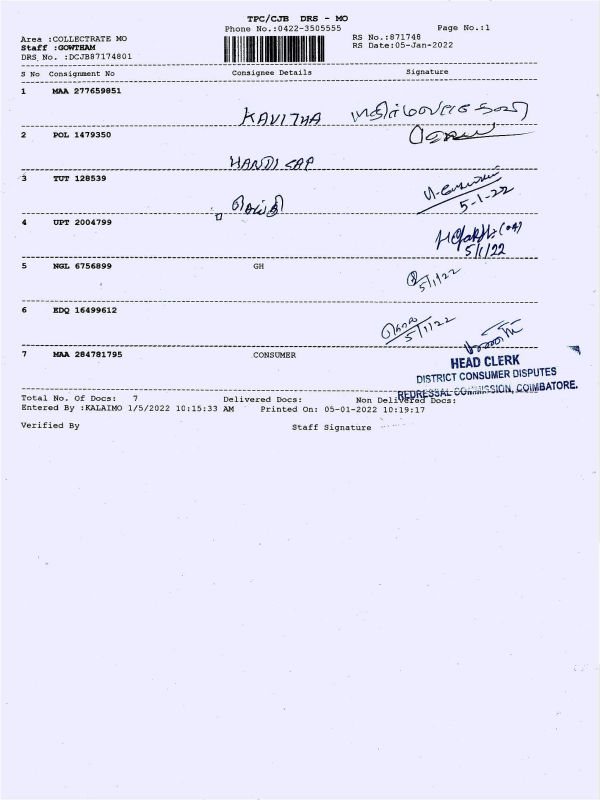 TPC/CJB DRS - MO
Phone No.:0422-3505555
Page No.:1
Area :COLLECTRATE MO
RS No.:871748
Staff :GOWTHAM
RS Date:05-Jan-2022
DRS No. :DCJB87174801
S No Consignment No Consignee Details Signature
1 MAA 277659851
KAVITHA
2 POL 1479350
HANDI CAP
3 TUT 128539
5-1-22
4 UPT 2004799
5/1/22
5 NGL 6756899 GH
5/1/22
6 EDQ 16499612
5/1/22
7 MAA 284781795 CONSUMER
HEAD CLERK
DISTRICT CONSUMER DISPUTES
REDRESSAL COMMISSION, COIMBATORE.
Total No. Of Docs: 7 Delivered Docs: Non Delivered Docs:
Entered By :KALAIMO 1/5/2022 10:15:33 AM Printed On: 05-01-2022 10:19:17
Verified By Staff Signature